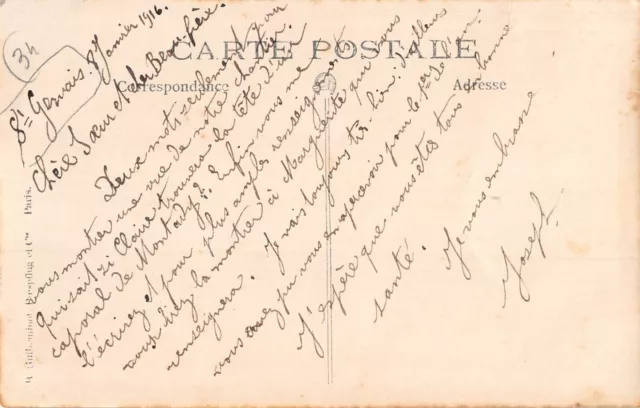 34
CARTE POSTALE
Correspondance
Adresse
St Gervais. 8 Janvier 1916.
Chère Sœur et cher Beau frère.
Deux mots seulement pour
vous montrer une vue de notre chantier.
Qui sait si Claire trouvera la tête d'un
caporal de Montady? Enfin vous me
l'écrirez et pour plus amples renseignements
vous direz la montrer à Marguerite qui vous
renseignera. Je vais toujours très bien: d'ailleurs
vous avez pu vous en apercevoir pour le 1er de l'an.
J'espère que vous êtes tous en bonne
santé.
Je vous embrasse
Joseph
et Cie Paris.